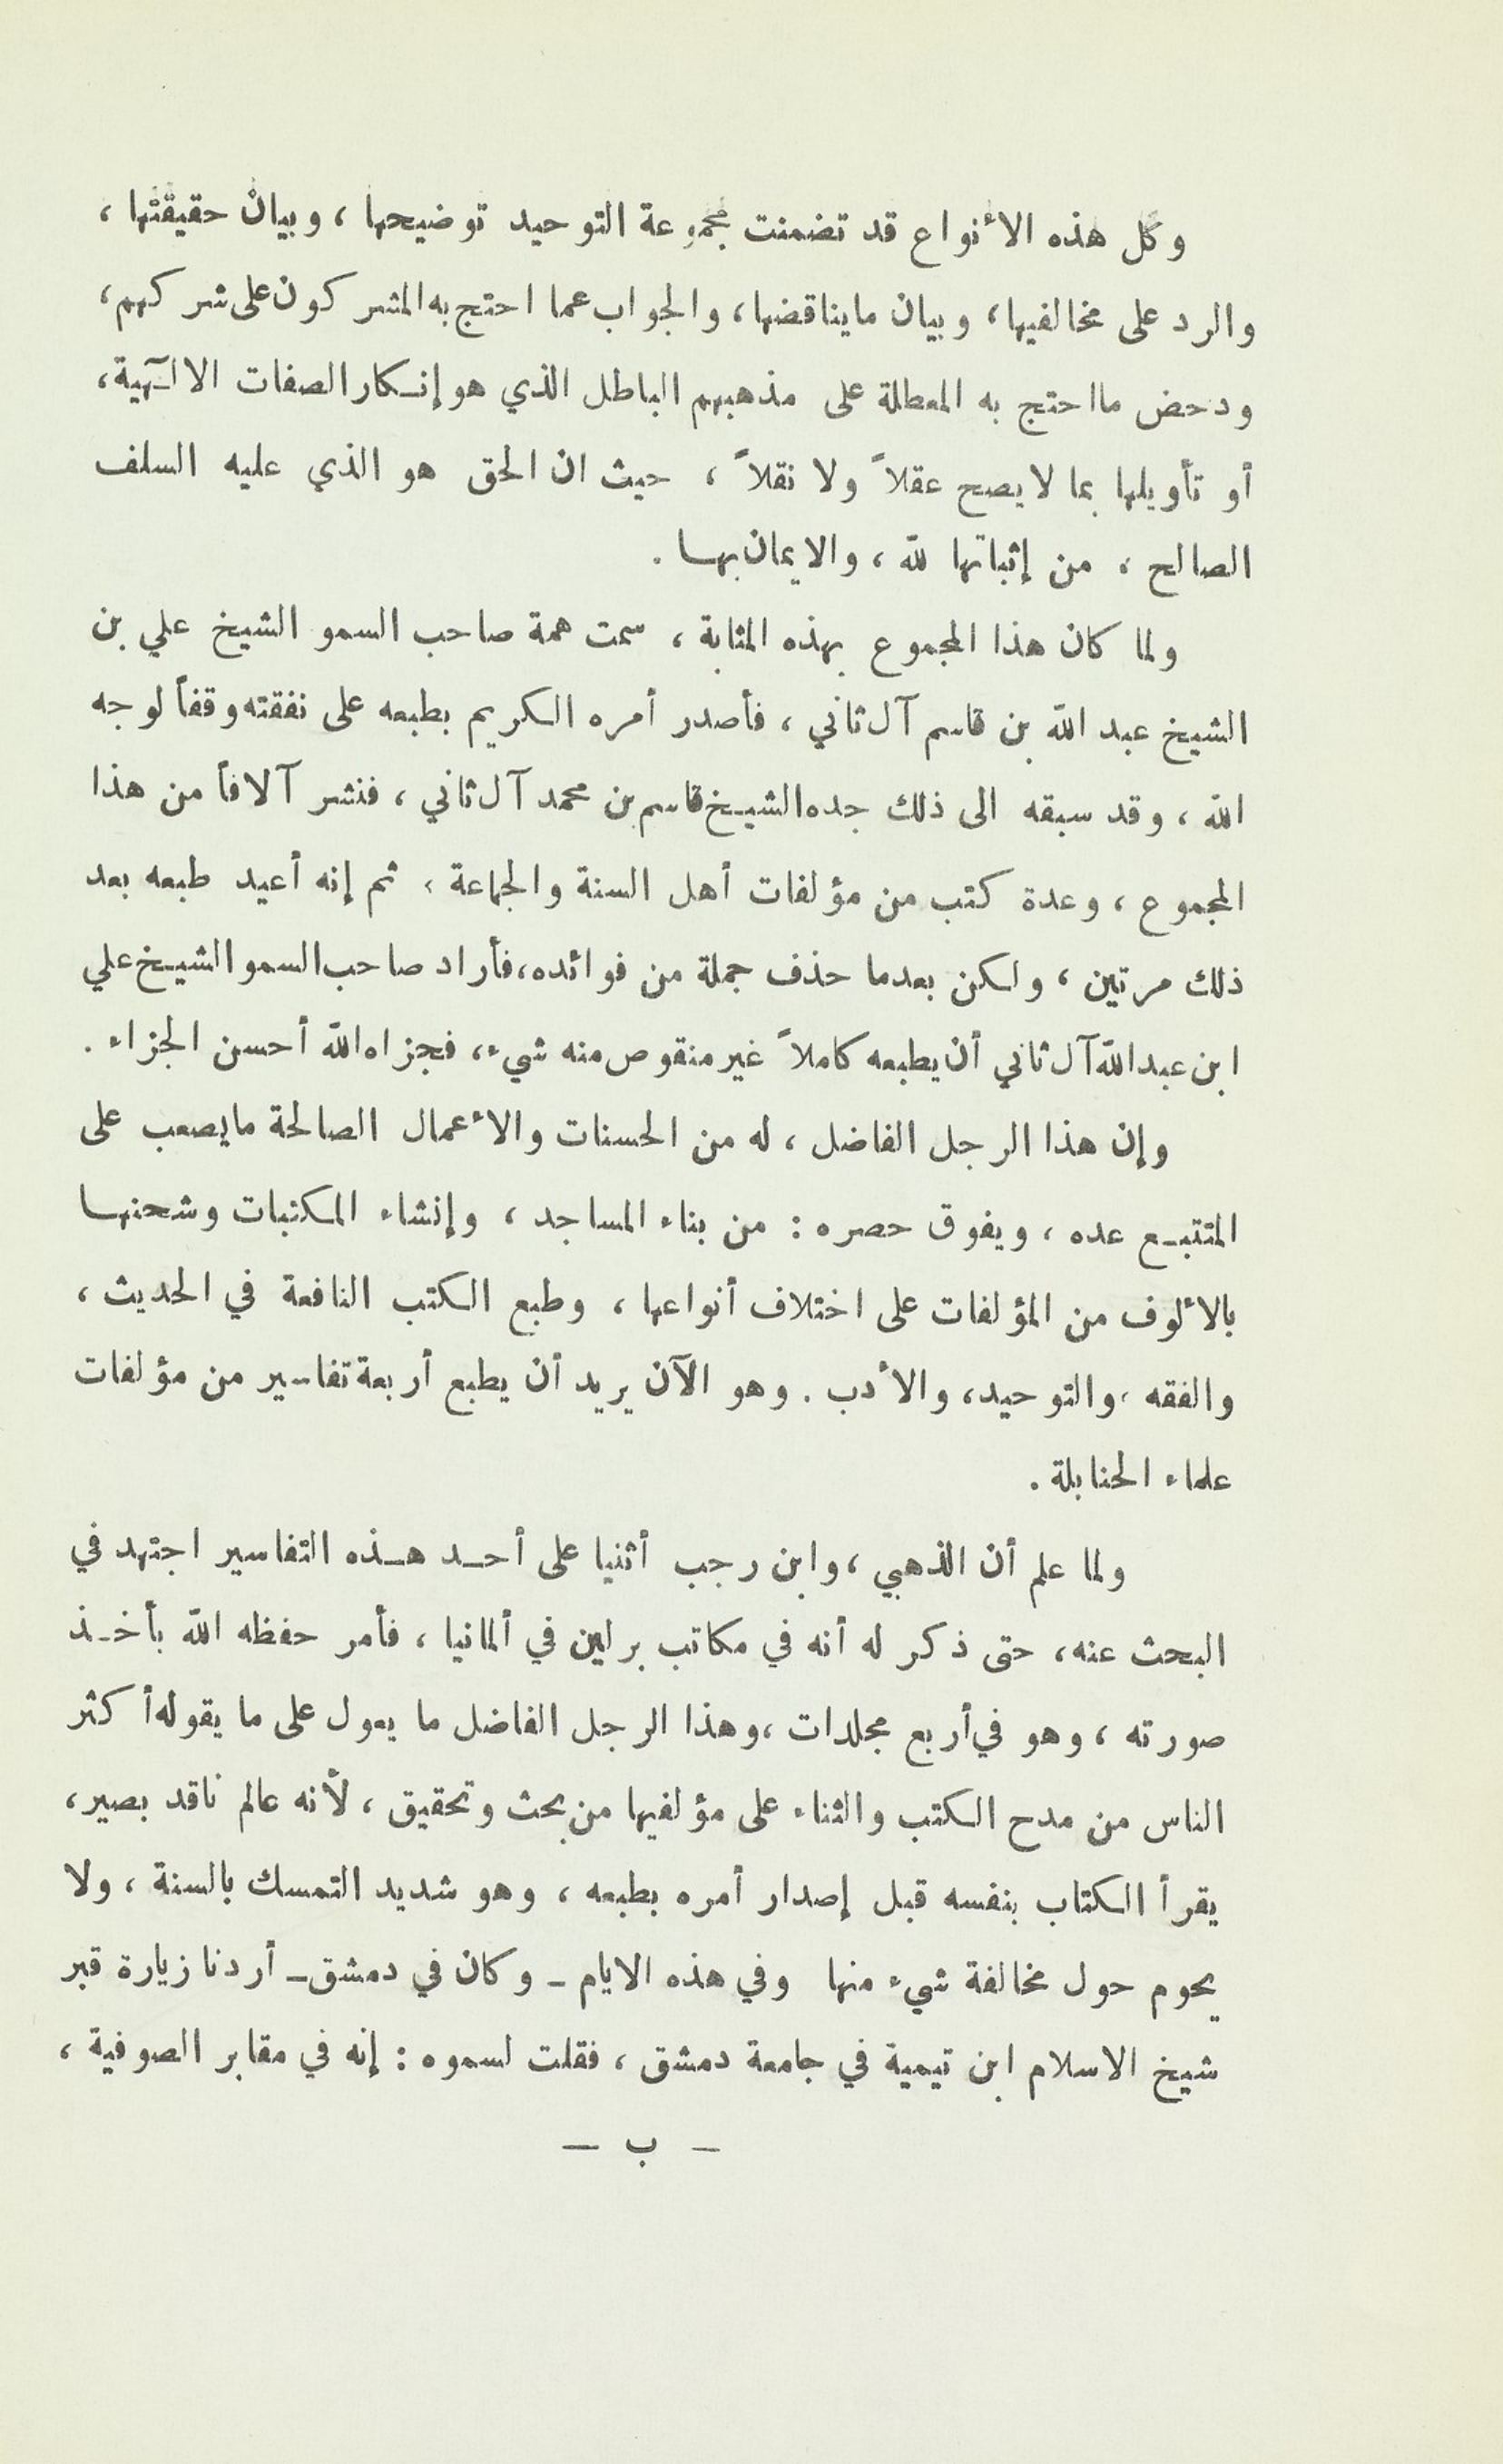 وكل هذه الأنواع قد تضمنت مجموعة التوحيد توضيحها ، وبيان حقيقتها ،
والرد على مخالفيها ، وبيان مايناقضها ، والجواب عما احتج به المشركون على شركهم ،
ودحض مااحتج به المعطلة على مذهبهم الباطل الذي هو إنكار الصفات الالٓهية ،
أو تأويلها بما لايصح عقلاً ولا نقلاً ، حيث ان الحق هو الذي عليه السلف
الصالح ، من إثباتها لله ، والايمان بها .
ولما كان هذا المجموع بهذه المثابة ، سمت همة صاحب السمو الشيخ علي بن
الشيخ عبد الله بن قاسم آل ثاني ، فأصدر أمره الكريم بطبعه على نفقته وقفاً لوجه
الله ، وقد سبقه الى ذلك جده الشيخ قاسم بن محمد آل ثاني ، فنشر آلافاً من هذا
المجموع ، وعدة كتب من مؤلفات أهل السنة والجماعة ، ثم إنه أعيد طبعه بعد
ذلك مرتين ، ولكن بعدما حذف جملة من فوائده ، فأراد صاحب السمو الشيخ علي
ابن عبد الله آل ثاني أن يطبعه كاملاً غير منقوص منه شيء ، فجزاه الله أحسن الجزاء .
وإن هذا الرجل الفاضل ، له من الحسنات والأعمال الصالحة مايصعب على
المتتبع عده ، ويفوق حصره : من بناء المساجد ، وإنشاء المكتبات وشحنها
بالألوف من المؤلفات على اختلاف أنواعها ، وطبع الكتب النافعة في الحديث ،
والفقه ، والتوحيد ، والأدب . وهو الآن يريد أن يطبع أربعة تفاسير من مؤلفات
علماء الحنابلة .
ولما علم أن الذهبي ، وابن رجب أثنيا على أحد هذه التفاسير اجتهد في
البحث عنه ، حتى ذكر له أنه في مكاتب برلين في ألمانيا ، فأمر حفظه الله بأخذ
صورته ، وهو في أربع مجلدات ، وهذا الرجل الفاضل ما يعول على ما يقوله أكثر
الناس من مدح الكتب والثناء على مؤلفيها من بحث وتحقيق ، لأنه عالم ناقد بصير ،
يقرأ الكتاب بنفسه قبل إصدار أمره بطبعه ، وهو شديد التمسك بالسنة ، ولا
يحوم حول مخالفة شيء منها وفي هذه الايام ـ وكان في دمشق ـ أردنا زيارة قبر
شيخ الاسلام ابن تيمية في جامعة دمشق ، فقلت لسموه : إنه في مقابر الصوفية ،
ـ ب ـ